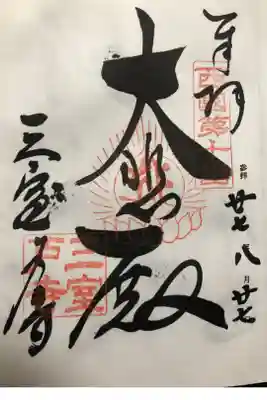 奉拝
西国第十番
廿七年八月廿七
大悲殿
三室戸寺
三室
戸寺